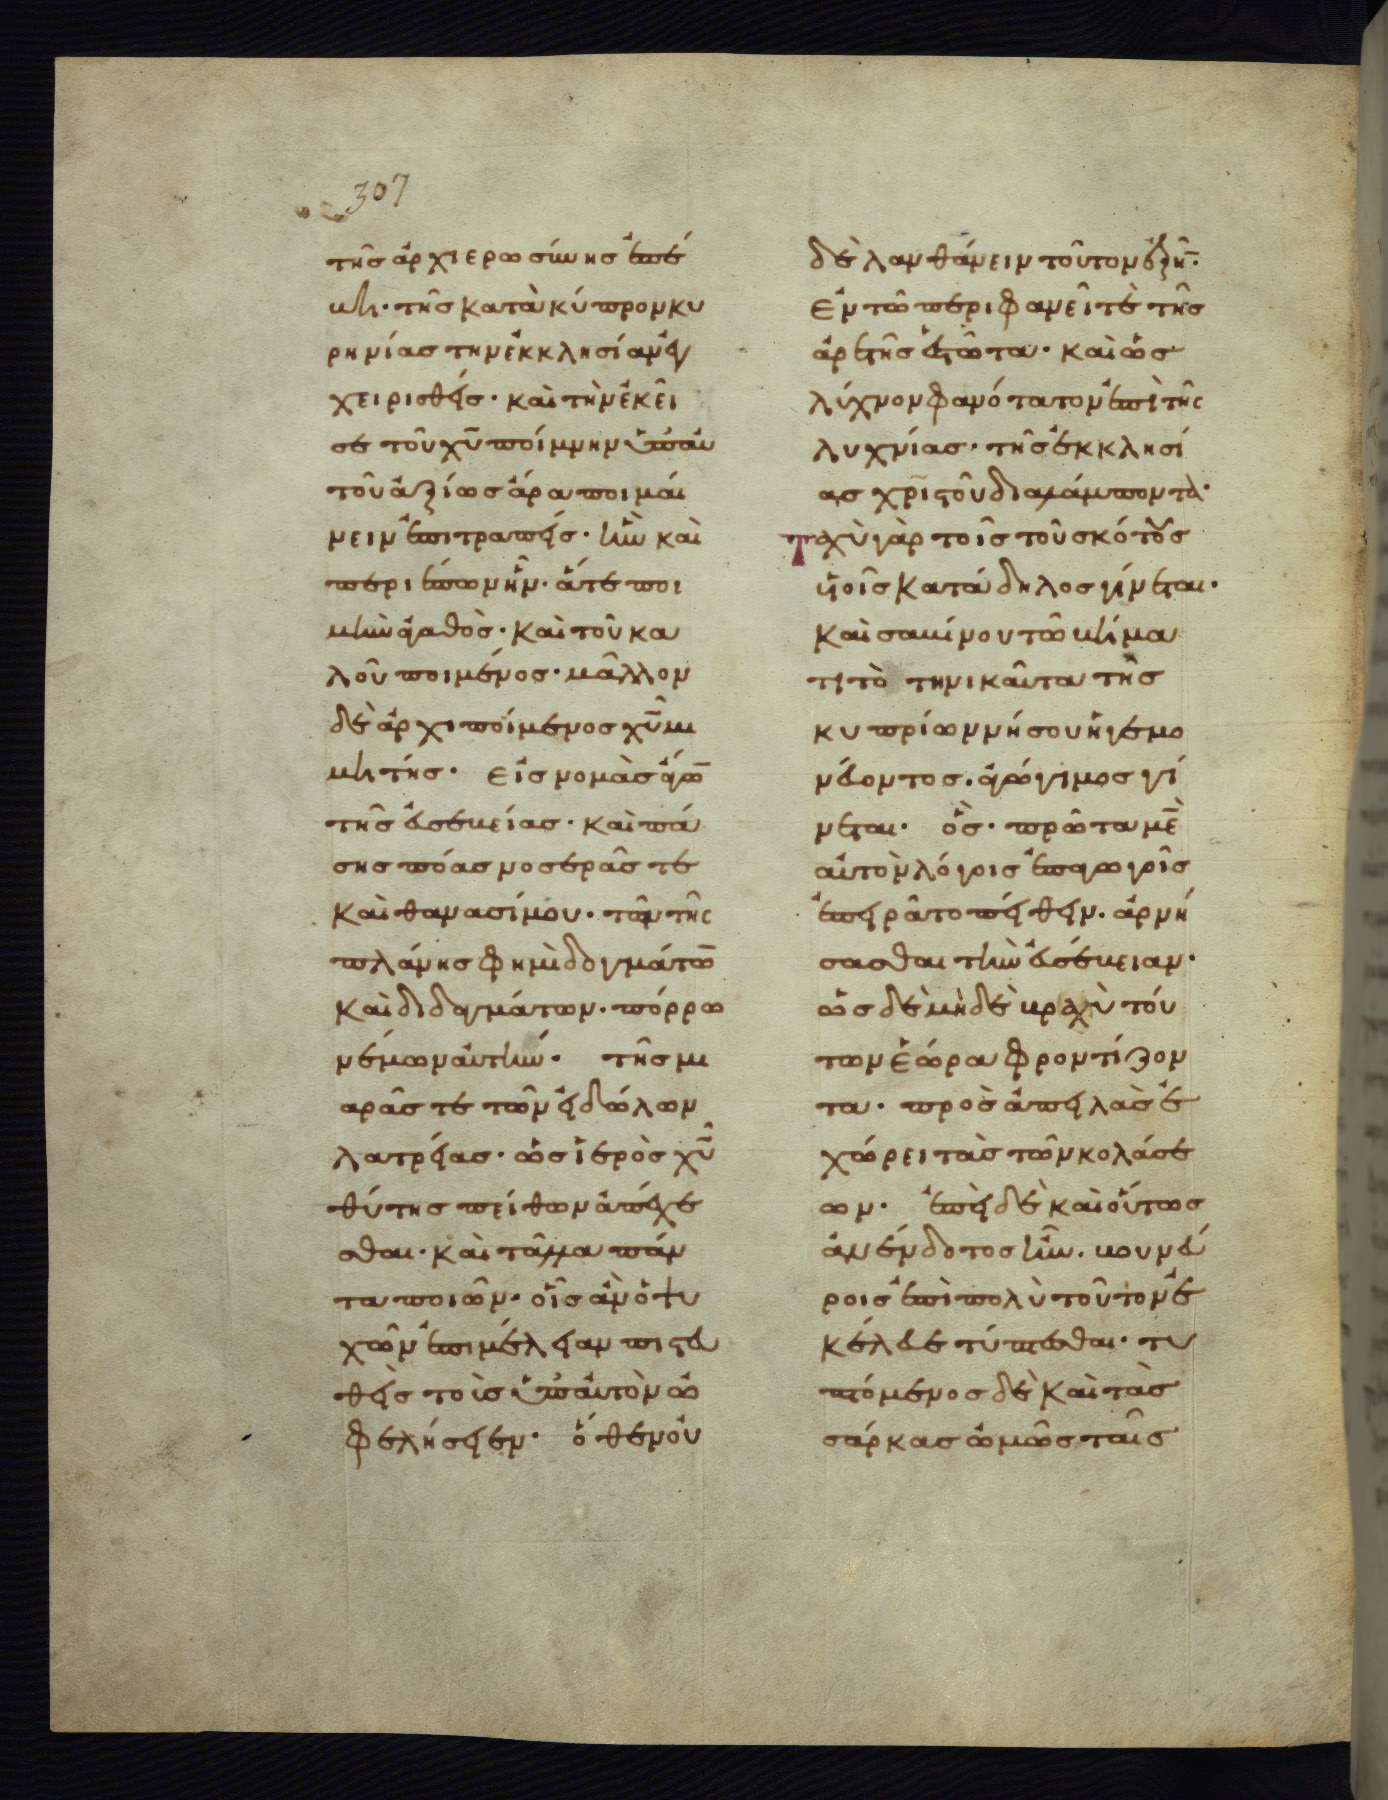 307
τῆς ἀρχιερωσύνης ἐπέ
βη· τῆς κατὰ κύπρον κυ
ρηνίας τὴν ἐκκλησίαν ἐγ
χειρισθείς· καὶ τὴν ἐκεῖ
σε τοῦ χῦ ποίμνην ὑπ' αὐ
τοῦ ἀξίως ἄρα ποιμαί
νειν ἐπιτραπείς· ἣν καὶ
περιέπων ἦν· ἅτε ποι
μὴν ἀγαθὸς· καὶ τοῦ κα
λοῦ ποιμένος· μᾶλλον
δὲ ἀρχιποίμενος χῦ μι
μητής· εἰς νομὰς ἄγω̅
τῆς εὐσεβείας· καὶ πά
σης πόας νοσερᾶς τε
καὶ θανασίμου· τῶν τῆς
πλάνης φημὶ δογμάτω̅
καὶ διδαγμάτων· πόρρω
νέμων αὐτήν· τῆς μι
αρᾶς τε τῶν εἰδώλων
λατρείας· ὡς ἱερὸς χῦ
θύτης πείθων ἀπέχε
σθαι· καὶ τἄλλα πάν
τα ποιῶν· οἷς ἂν ὁ τυ
χὼν ἐπιμέλειαν πιστευ
θεὶς τοὺς ὑπ' αὐτὸν ὠ
φελήσειεν· ὅθεν οὐ
δὲ λανθάνειν τοῦτον ἐξῆν·
ἐν τῶ περιφανεῖ τε τῆς
ἀρετῆς ἑστῶτα· καὶ ὡς
λύχνον φανότατον ἐπὶ τῆς
λυχνίας· τῆς ἐκκλησί
ας χρι̅στοῦ διαλάμποντα·
Ταχὺ γὰρ τοῖς τοῦ σκότους
υἱοῖς κατάδηλος γίνεται·
καὶ σαβίνου τῶ βήμα
τι τὸ τηνικαῦτα τῆς
κυπρίων νήσου ἡγεμο
νεύοντος. ἀγώγιμος γί
νεται· ὃς· πρῶτα με̅
αὐτὸν λόγοις ἐπαγωγοῖς
ἐπειρᾶτο πείθειν. ἀρνή
σασθαι τὴν εὐσέβειαν·
ὡς δὲ μηδὲ βραχὺ τού
των ἑώρα φροντίζον
τα· πρὸς ἀπειλὰς ἐ
χώρει τὰς τῶν κολάσε
ων· ἐπεὶ δὲ καὶ οὕτως
ἀνένδοτος ἦν. βουνεύ
ροις ἐπὶ πολὺ τοῦτον ἐ
κέλευε τύπτεσθαι· τυ
πτόμενος δὲ καὶ τὰς
σάρκας ὠμῶς ταῖς